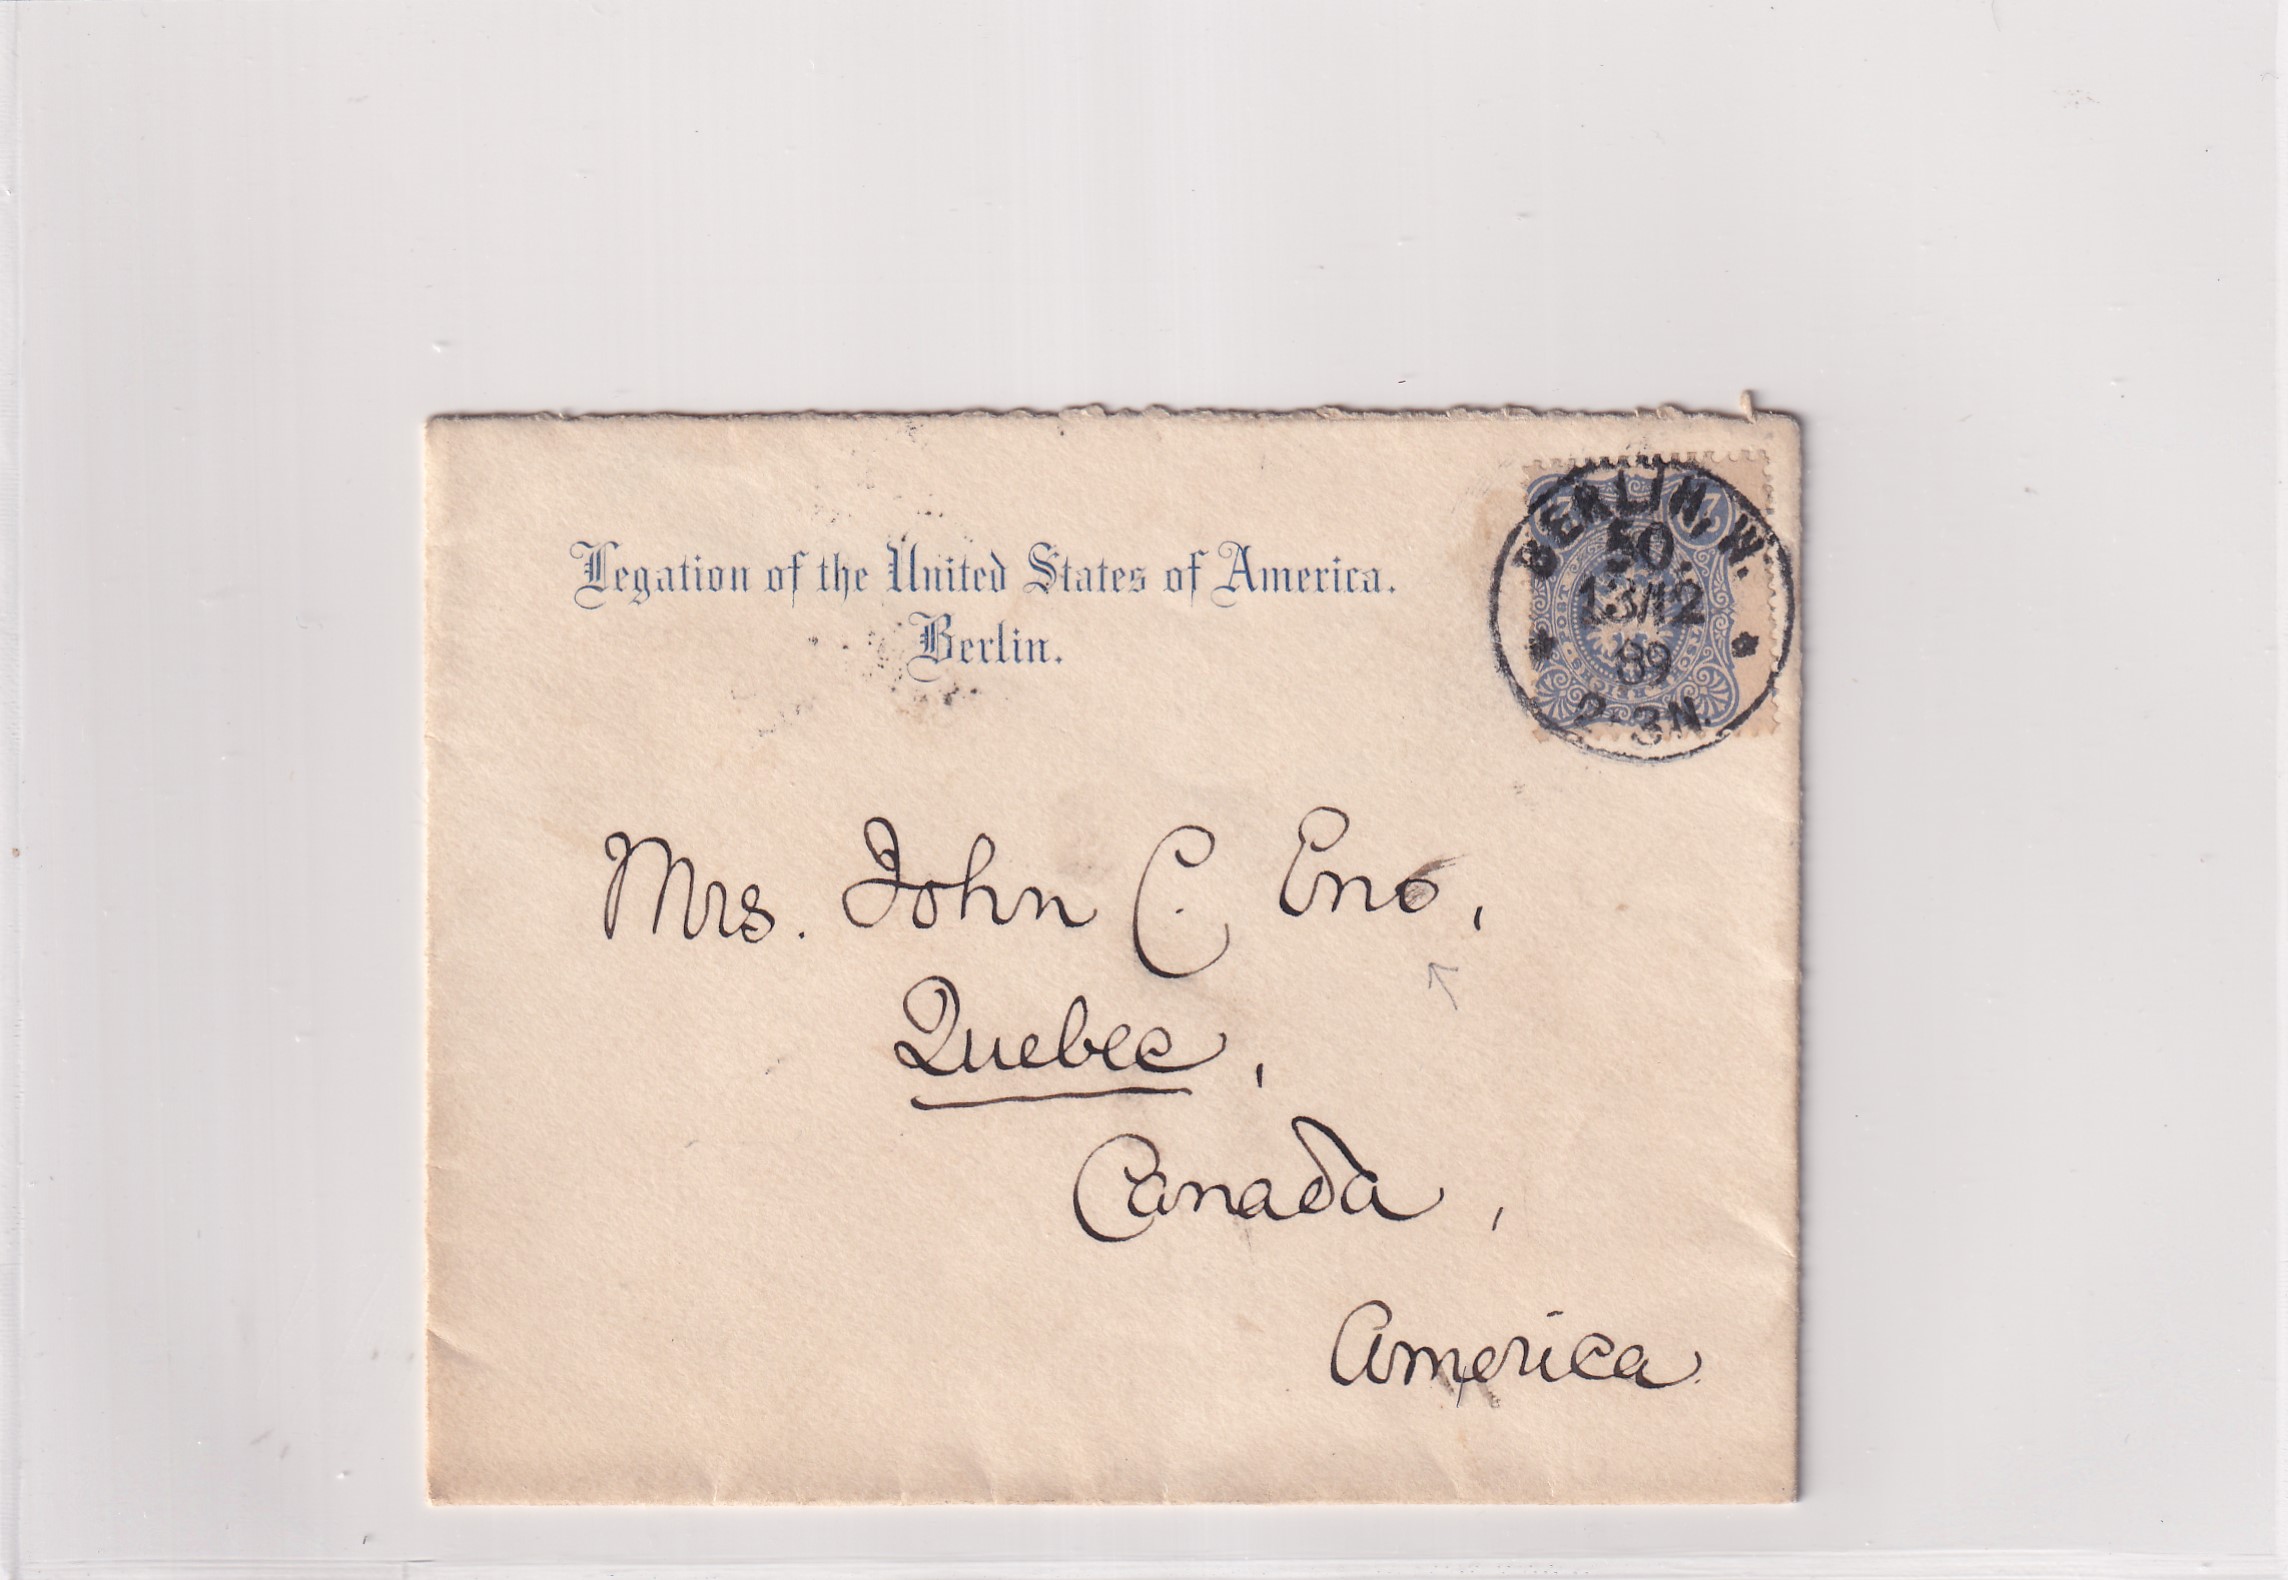 Legation of the United States of America.
Berlin.
BERLIN, W.
50.
13/12
89
2-3N.
Mrs. John C. Eno,
Quebec,
Canada,
America